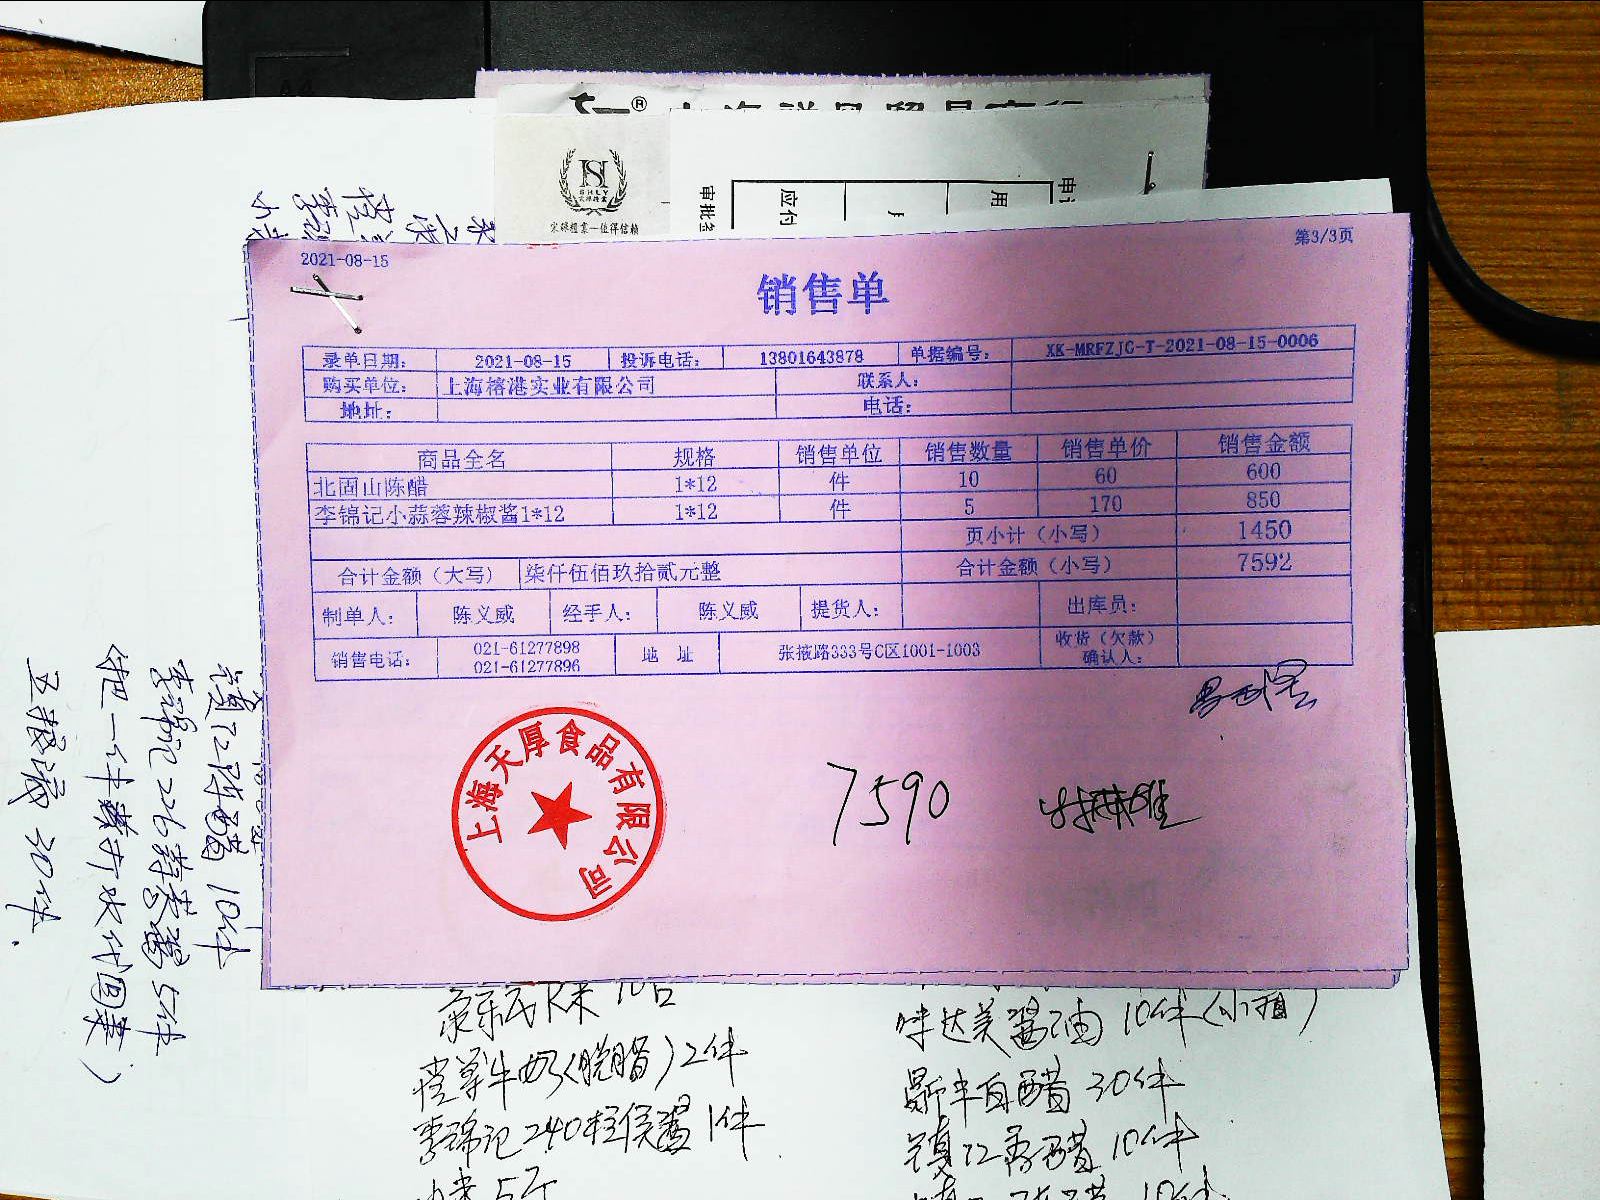 宋硖粮业—值得信赖
审批签
应付
用
2021-08-15
第3/3页
销售单
录单日期: 2021-08-15 投诉电话: 13801643878 单据编号: XK-MRFZJC-T-2021-08-15-0006
购买单位: 上海榕港实业有限公司 联系人:
地址: 电话:
商品全名 规格 销售单位 销售数量 销售单价 销售金额
北固山陈醋 1*12 件 10 60 600
李锦记小蒜蓉辣椒酱1*12 1*12 件 5 170 850
页小计（小写） 1450
合计金额（大写） 柒仟伍佰玖拾贰元整 合计金额（小写） 7592
制单人: 陈义威 经手人: 陈义威 提货人: 出库员:
销售电话: 021-61277898 021-61277896 地 址 张掖路333号C区1001-1003 收货（欠款）确认人:
上海天厚食品有限公司
7590
镇江陈醋 10件
李锦记226蒜蓉酱 5件
30件
10包
牛奶(脱脂) 2件
李锦记240柱侯酱 1件
小米 5斤
味达美酱油 10件(小瓶)
白醋 30件
镇江香醋 10件